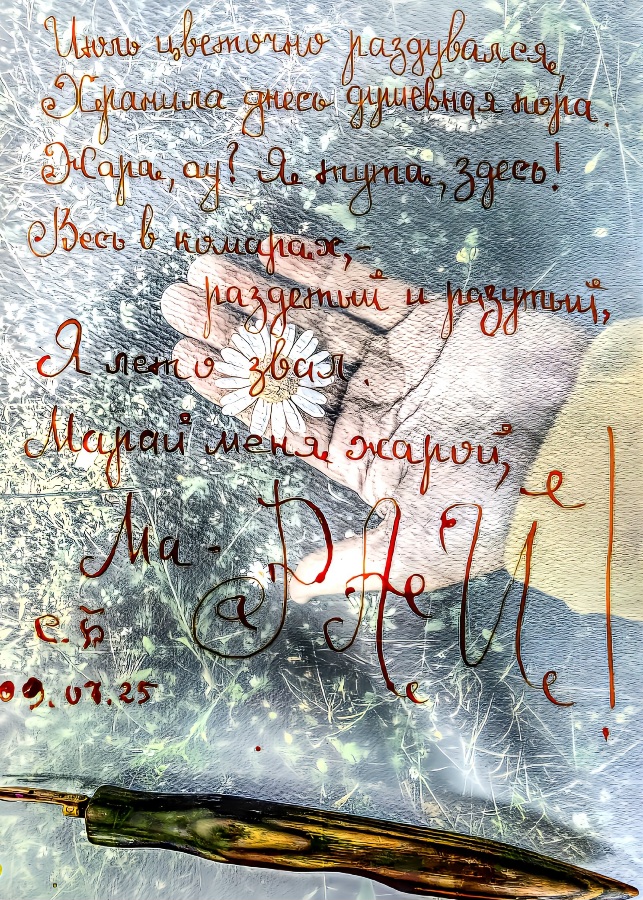 Июль цветочно раздувался,
Хранила днесь душевная пора.
Жара, ау? Я тута, здесь!
Весь в комарах,-
раздетый и разутый,
Я лето звал.
Марай меня жарой,
Ма-РАЙ!
@
с.Б
09.07.25